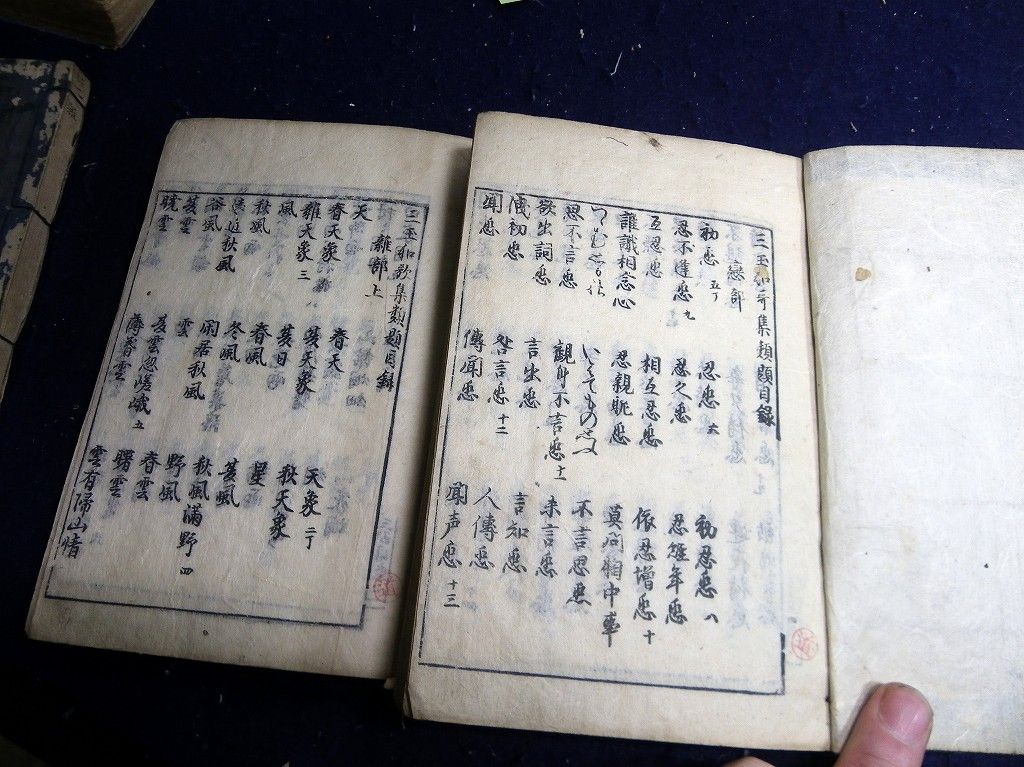 三玉和哥集類題目録
戀部
初恋 五丁 忍恋 六 初忍恋 八
忍不逢恋 九 忍久恋 忍經年恋
互忍恋 相互忍恋 依忍増恋 十
誰識相念心 忍親昵恋 莫問胸中事
不言忍恋
思不言恋 観身不言恋 十一 未言恋
欲出詞恋 言出恋 言知恋
初恋 言恋 十二 人傳恋
聞恋 傳聞恋 聞声恋 十三
三玉和歌集類題目録
雜部上
天 春天 天象 二丁
春天象 夏天象 秋天象
雜天象 三 夏日 星
風 春風 夏風
秋風 冬風 秋風満野 四
遠近秋風 閑居秋風 野風
谷風 雲 春雲
夏雲 夏雲忽嵯峨 曙雲
暁雲 薄暮雲 五 雲有帰山情